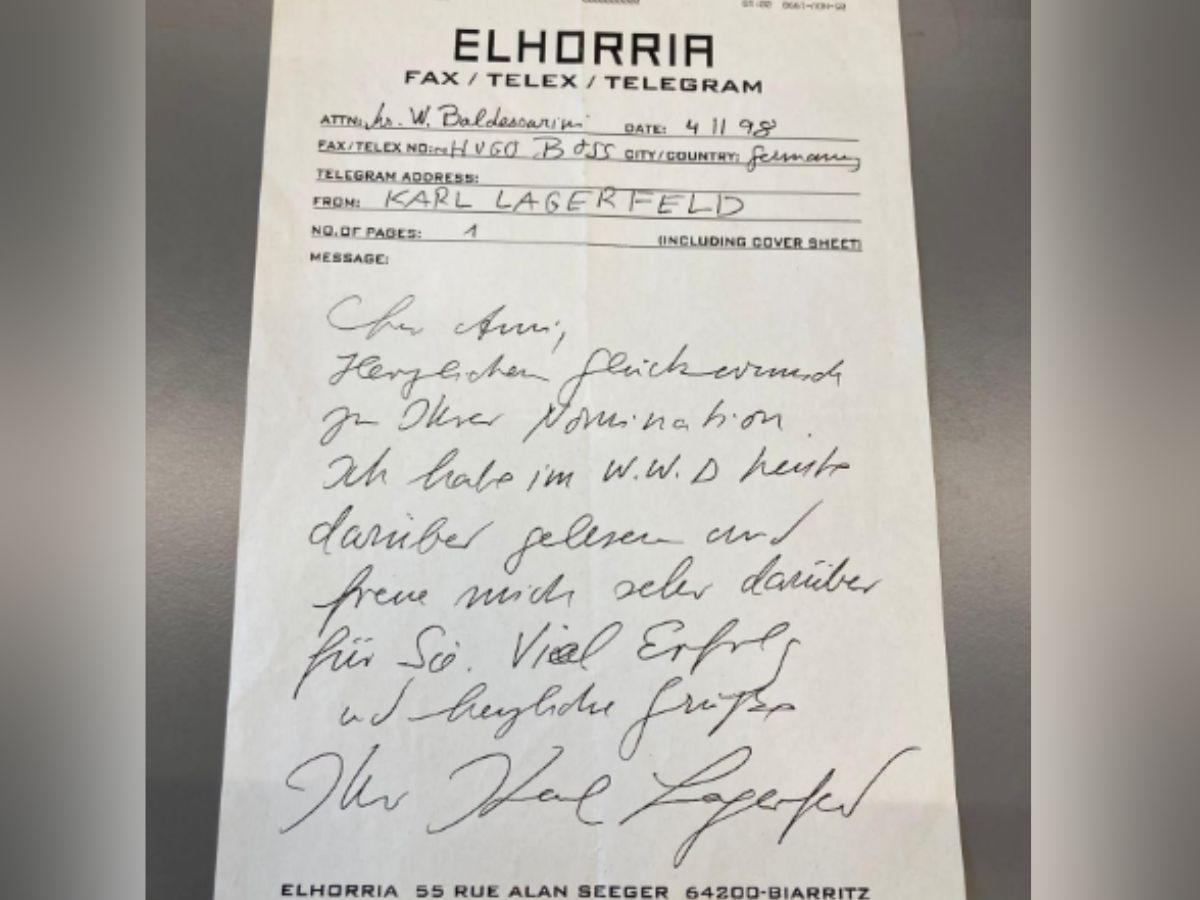 ELHORRIA
FAX / TELEX / TELEGRAM
ATTN: W. Baldessarini DATE: 4 11 98
FAX/TELEX NO: HUGO BOSS CITY/COUNTRY: Germany
TELEGRAM ADDRESS:
FROM: KARL LAGERFELD
NO. OF PAGES: 1 (INCLUDING COVER SHEET)
MESSAGE:
Cher Ami,
Herzlichen Glückwunsch
zu Ihrer Nomination.
Ich habe im W.W.D heute
darüber gelesen und
freue mich sehr darüber
für Sie. Viel Erfolg
und herzliche Grüße
Ihr Karl Lagerfeld
ELHORRIA 55 RUE ALAN SEEGER 64200-BIARRITZ